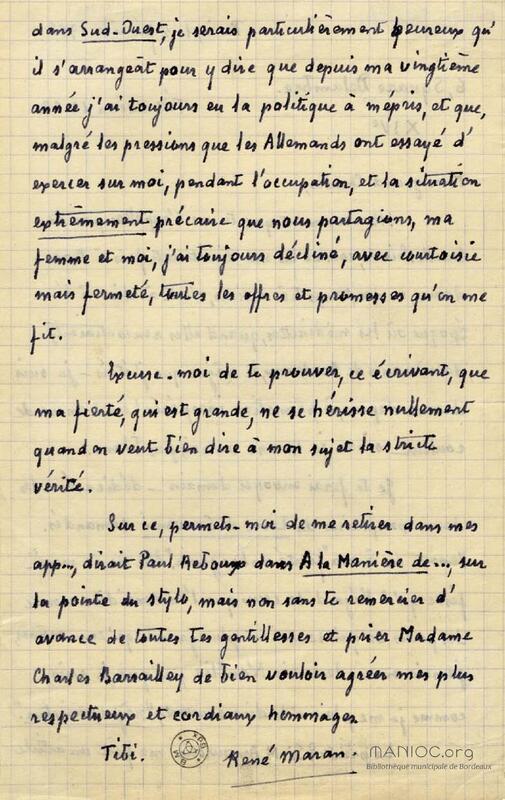 dans Sud-Ouest, je serais particulièrement heureux qu'
il s'arrangeât pour y dire que depuis ma vingtième
année j'ai toujours eu la politique à mépris, et que,
malgré les pressions que les Allemands ont essayé d'
exercer sur moi, pendant l'occupation, et la situation
extrêmement précaire que nous partagions, ma
femme et moi, j'ai toujours décliné, avec courtoisie
mais fermeté, toutes les offres et promesses qu'on me
fit.
Excuse-moi de te prouver, ce écrivant, que
ma fierté, qui est grande, ne se hérisse nullement
quand on veut bien dire à mon sujet la stricte
vérité.
Sur ce, permets-moi de me retirer dans mes
app..., dirait Paul Reboux dans A la Manière de..., sur
la pointe du stylo, mais non sans te remercier d'
avance de toutes tes gentillesses et prier Madame
Charles Barrailley de bien vouloir agréer mes plus
respectueux et cordiaux hommages
Tibi.
René Maran.
MANIOC.org
Bibliothèque municipale de Bordeaux